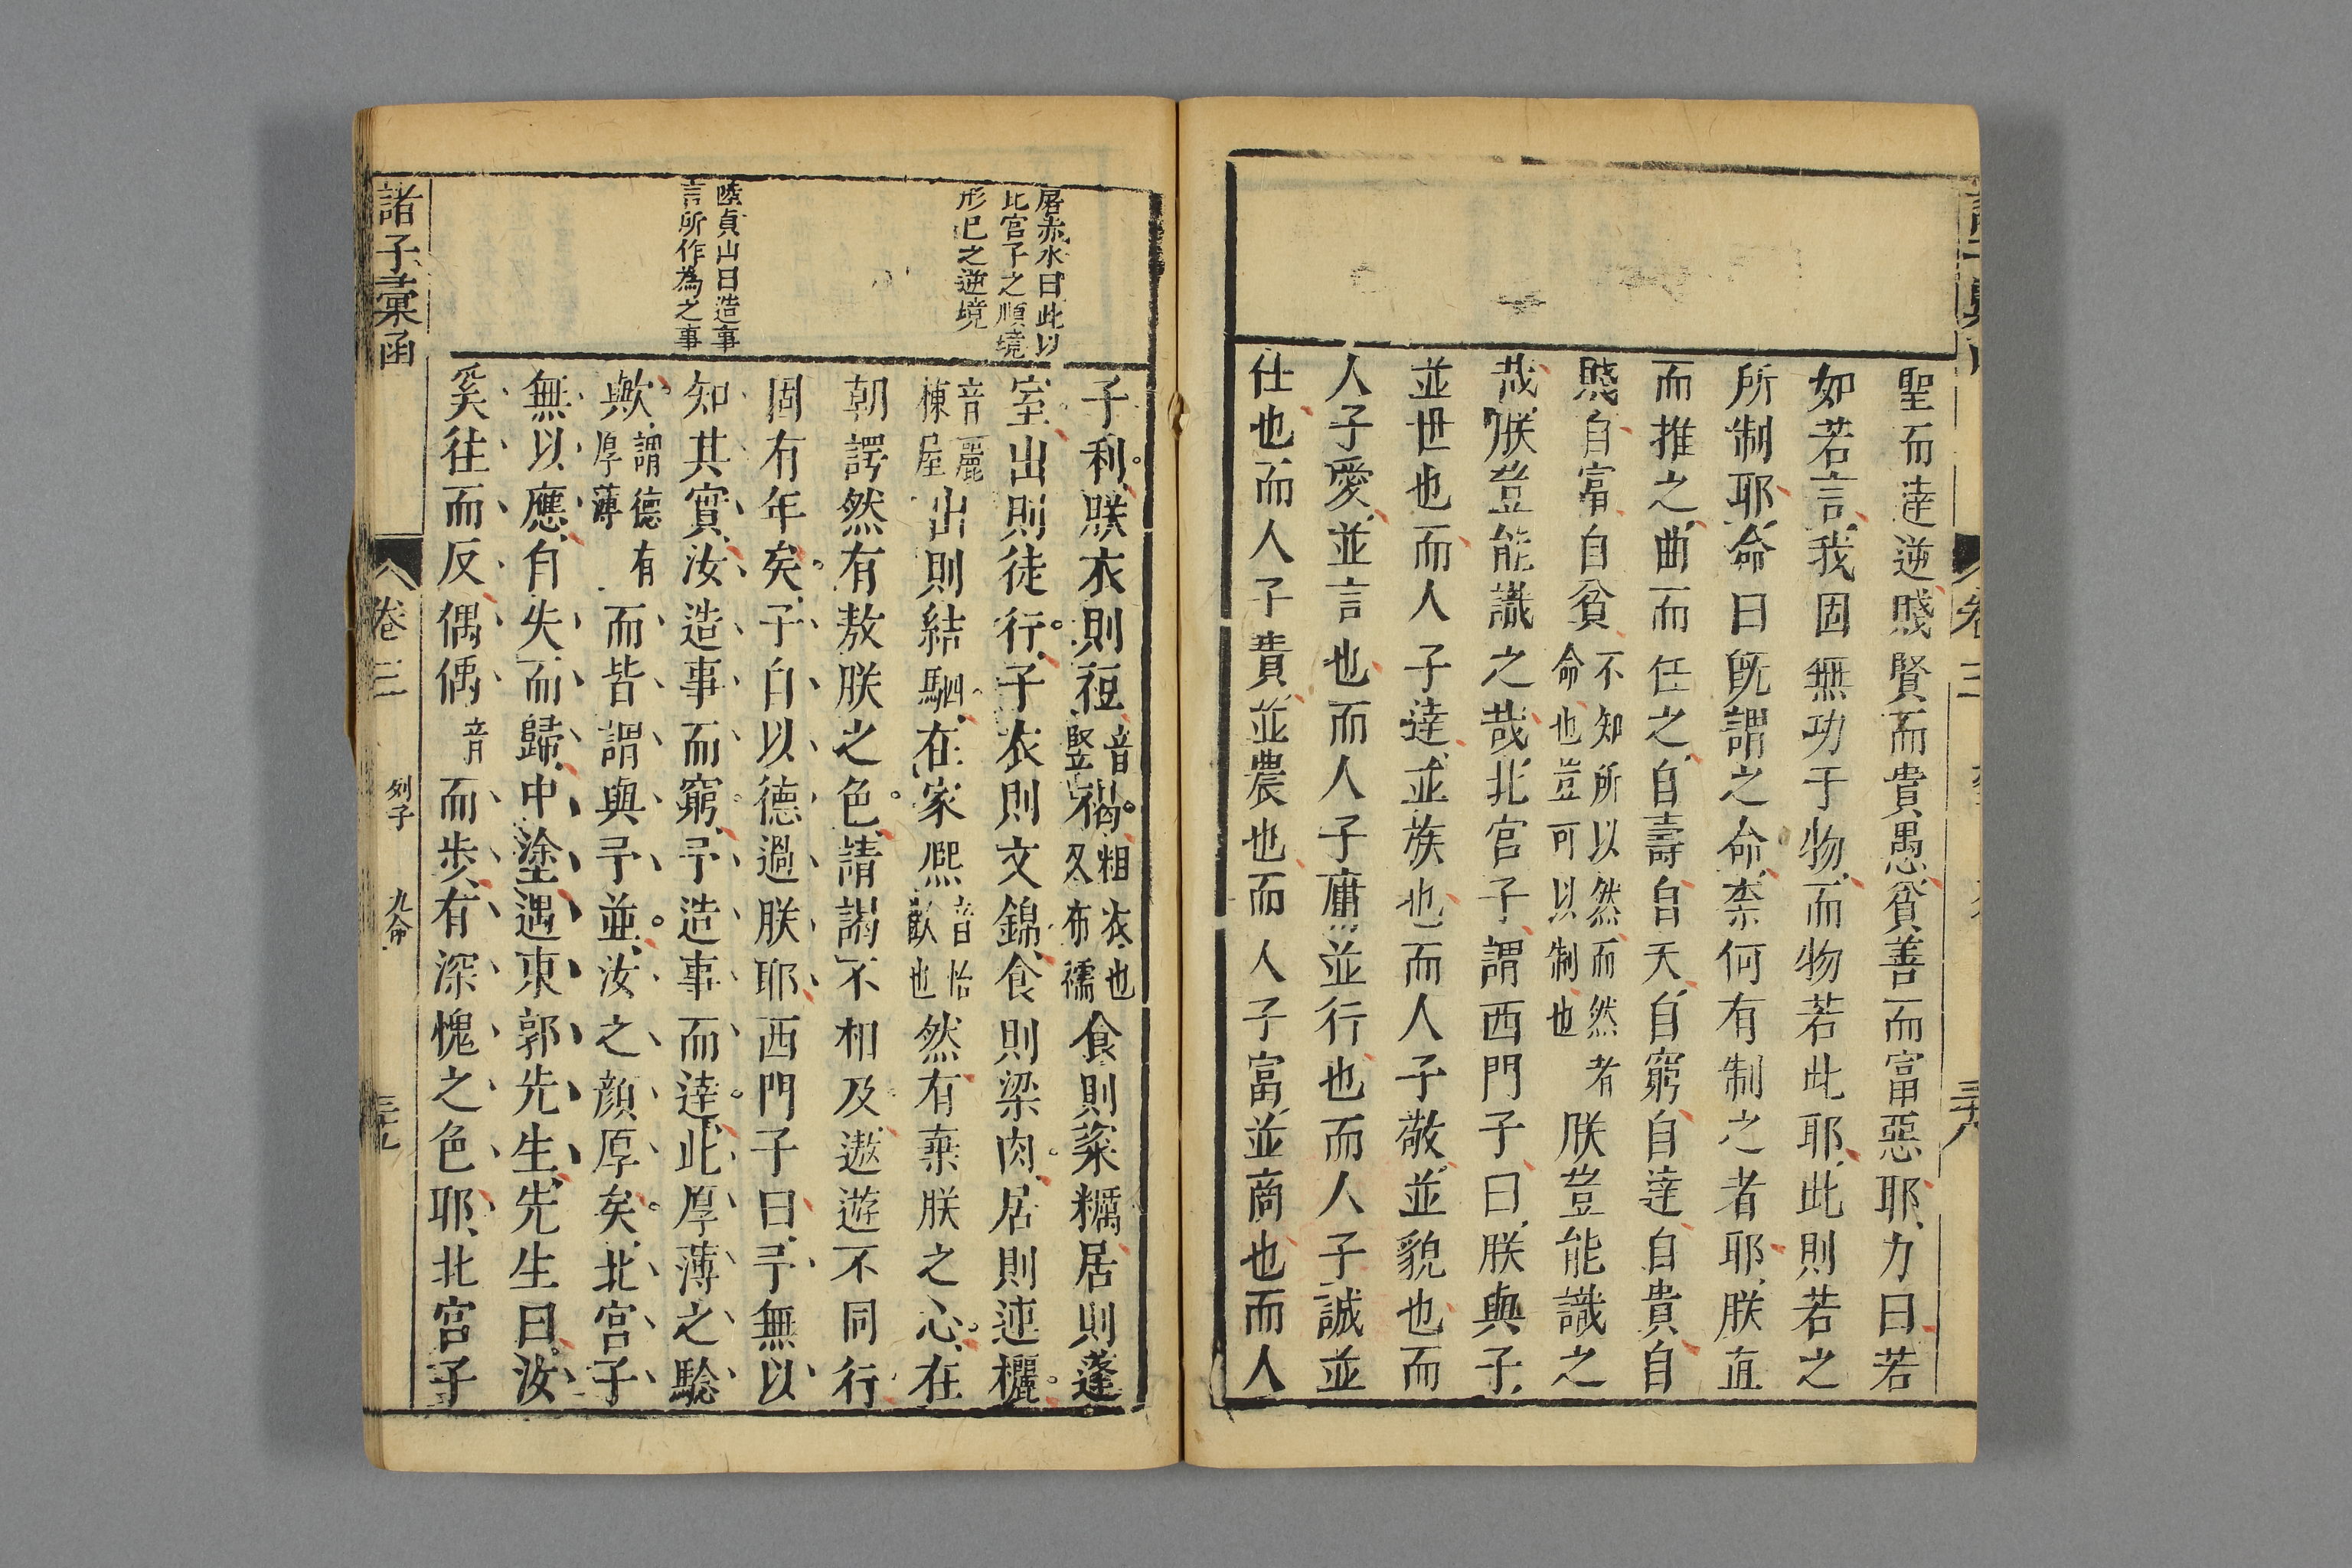 聖而達逆賤賢而貴愚貧善而富惡耶力曰若
如若言我固無功于物而物若此耶此則若之
所制耶命曰既謂之命柰何有制之者耶朕直
而推之曲而任之自壽自夭自窮自達自貴自
賤自富自貧不知所以然而然者命也豈可以制也朕豈能識之
哉朕豈能識之哉北宮子謂西門子曰朕與子
並世也而人子達並族也而人子敬並貌也而
人子愛並言也而人子庸並行也而人子誠並
仕也而人子貴並農也而人子富並商也而人
屠赤水曰此以
北宮子之順境
形已之逆境
陸貞山曰造事
言所作為之事
子利朕衣則裋音豎褐粗衣也又布襦食則粢糲居則蓬
室出則徒行子衣則文錦食則梁肉居則連欐
音麗棟屋出則結駟在家熈音怡歡也然有棄朕之心在
朝諤然有敖朕之色請謁不相及遨遊不同行
固有年矣子自以德過朕耶西門子曰予無以
知其實汝造事而窮予造事而達此厚薄之驗
歟謂德有厚薄而皆謂與予並汝之顔厚矣北宮子
無以應自失而歸中塗遇東郭先生先生曰汝
奚往而反偊偊音而步有深愧之色耶北宮子
諸子彙函
卷三
列子
九命
三十九